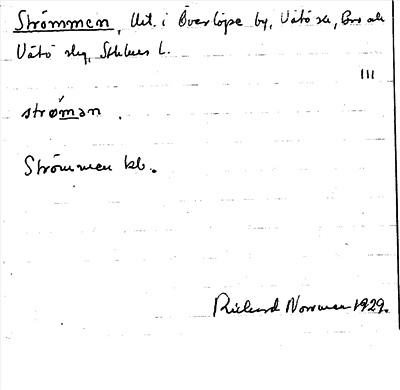 Strömmen, Utt. i Överlöpe by, Vätö sn, Bro och
Vätö skg, Sthlms l.
III
strǿmən .
Strömmen kb.
Rickard Norrman 1929.